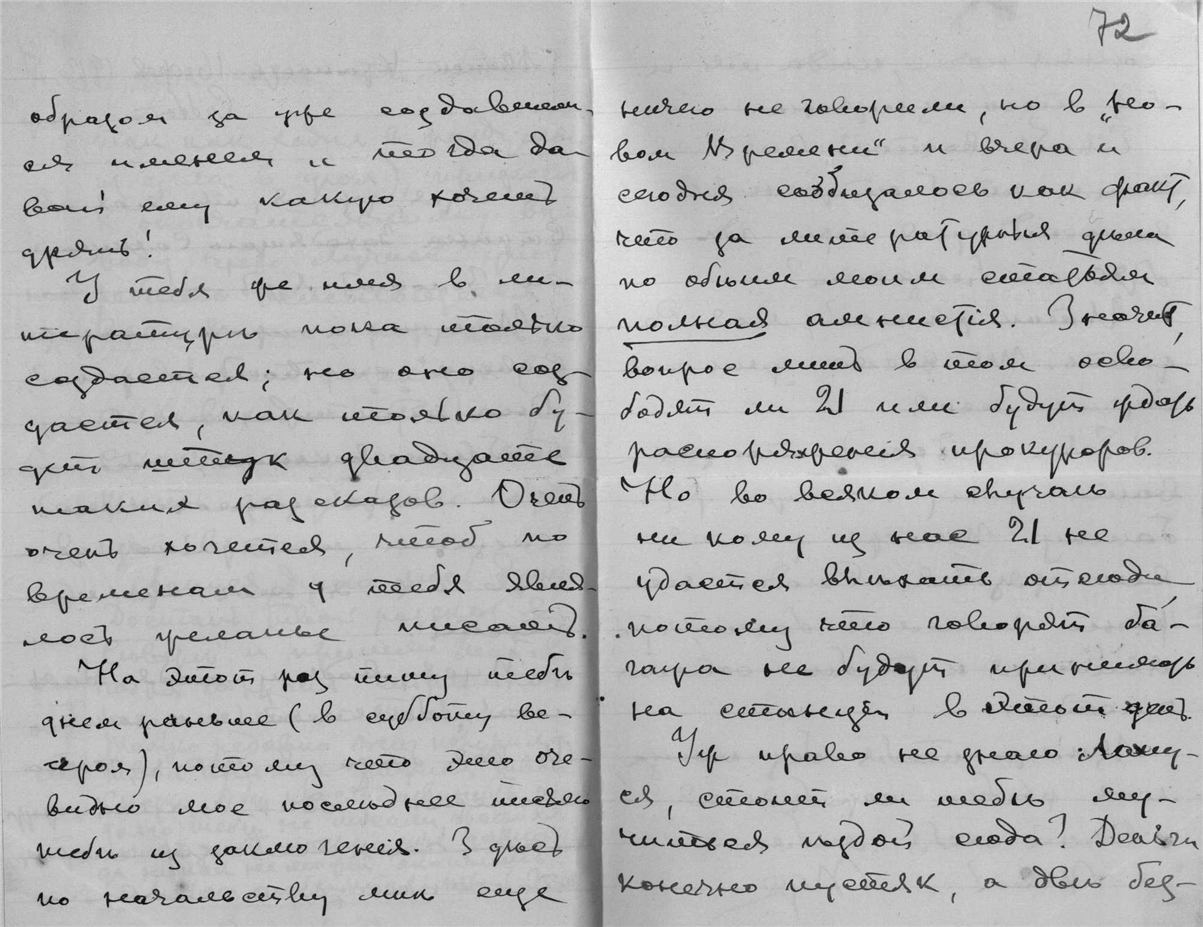 образом за уже создавшем-
ся именем и тогда да-
вай ему какую хочешь
дрянь!
У тебя же имя в ли-
тературѣ пока только
создается; но оно соз-
дается, как только бу-
дет штук двадцать
таких разсказов. Очень
очень хочется, чтоб по
временам у тебя явля-
лось желанье писать.
На этот раз пишу тебѣ
днем раньше (в субботу ве-
чером), потому что это оче-
видно мое послѣднее письмо
тебѣ из заключенія. Здѣсь
по начальству мнѣ еще
72
ничего не говорили, но в „Но-
вом Времени“ и вчера и
сегодня сообщалось как факт,
что за литературныя дѣла
по обѣим моим статьям
полная амнистія. Значит,
вопрос лишь в том осво-
бодят ли 21 или будут ждать
распоряженія прокуроров.
Но во всяком случаѣ
ни кому из нас 21 не
удастся выѣхать отсюда,
потому что говорят ба-
гажа не будут принимать
на станціи в этот день.
Уж право не знаю
ся, стоит ли тебѣ му-
читься ѣздой сюда? Деньги
конечно пустяк, а двѣ без-